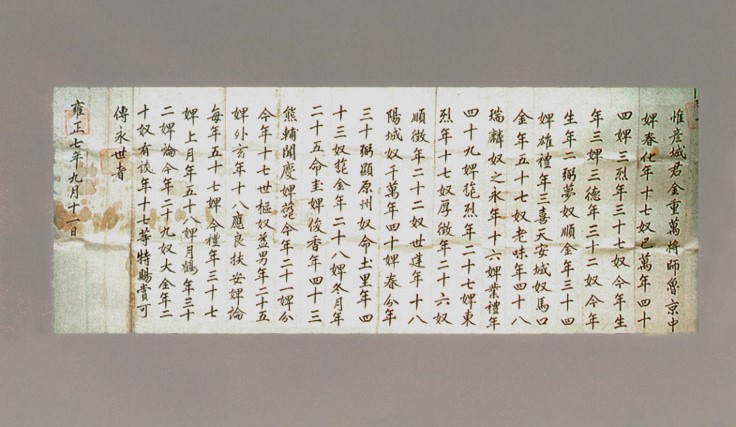 惟彦城君金重萬將師魯京中
婢春化年十七奴已萬年四十
四婢三烈年三十七奴今年生
年三婢三德年三十二奴今年
生年二弼夢奴順金年三十四
婢雄禮年三喜天安城奴馬口
金年五十七奴老味年四十八
瑞麟奴之永年十六婢業禮年
四十九婢 烈年二十七婢東
烈年十七奴厚徵年二十六奴
順徵年二十二奴世達年十八
陽城奴千萬年四十婢春分年
三十弼顯原州奴命土里年四
十三奴 金年二十八婢冬月年
二十五命圭婢俊香年四十三
熊輔聞慶婢 今年二十一婢分
今年十七世樞奴 男年二十五
婢外玄年十八應良扶安婢論
每年五十七婢 今禮年三十七
婢上月年五十八婢月鶴年三十
二婢論今年二十九奴大金年二
十奴有談年十七等特賜賞可
傳永世者
雍正七年九月十一日